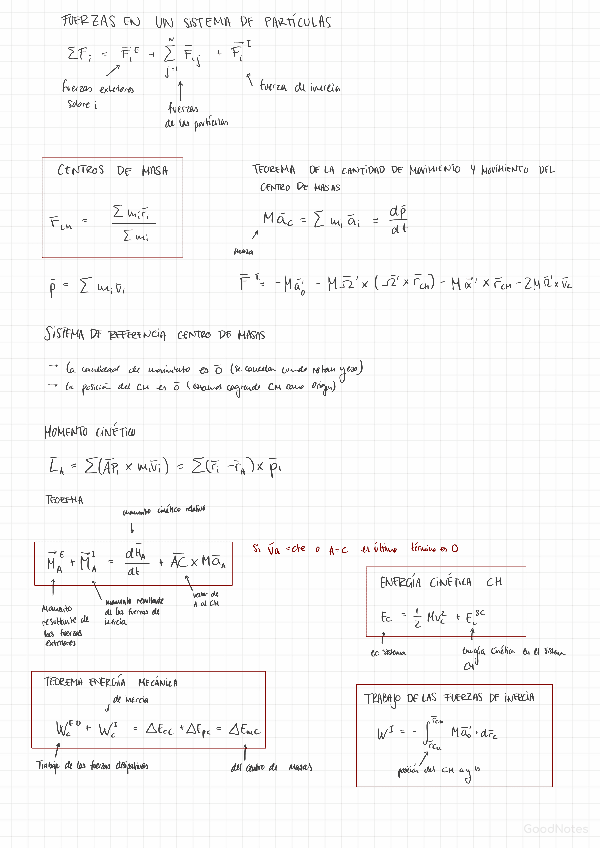 FUERZAS EN UN SISTEMA DE PARTÍCULAS
ΣF̄ᵢ = F̄ᵢᴱ + Σ F̄ᵢⱼ + F̄ᵢᴵ
N
j=1
fuerzas exteriores
sobre i
fuerzas
de las partículas
fuerza de inercia
CENTROS DE MASA
r̄_CM = Σ mᵢ r̄ᵢ / Σ mᵢ
TEOREMA DE LA CANTIDAD DE MOVIMIENTO Y MOVIMIENTO DEL
CENTRO DE MASAS
M ā_C = Σ mᵢ āᵢ = dp̄/dt
masa
p̄ = Σ mᵢ v̄ᵢ
F̄ᴵ = -Mā₀' - MΩ̄' × (Ω̄' × r̄_CM) - Mᾱ' × r̄_CM - 2MΩ̄' × v̄_C
SISTEMA DE REFERENCIA CENTRO DE MASAS
→ la cantidad de movimiento es 0̄ (se cancelan cuando rotan y eso)
→ la posición del CM es 0̄ (estamos cogiendo CM como origen)
MOMENTO CINÉTICO
L̄_A = Σ(ĀPᵢ × mᵢv̄ᵢ) = Σ(r̄ᵢ - r̄_A) × p̄ᵢ
TEOREMA
momento cinético relativo
M̄_Aᴱ + M̄_Aᴵ = dH̄_A/dt + ĀC × Mā_A
Si v̄a = cte o A=C el último término es 0
momento
resultante de
las fuerzas
exteriores
momento resultante
de las fuerzas de
inercia
vector de
A al CM
ENERGÍA CINÉTICA CM
Ec = 1/2 Mv_C² + E_CˢC
ec sistema
energía cinética en el sistema
CM
TEOREMA ENERGÍA MECÁNICA
de inercia
W_C + W_Cᴵ = ΔE_CC + ΔE_PC = ΔE_MC
Trabajo de las fuerzas disipativas
del centro de masas
TRABAJO DE LAS FUERZAS DE INERCIA
Wᴵ = - ∫ Mā₀' · dr̄_C
posición del CM a y b
GoodNotes